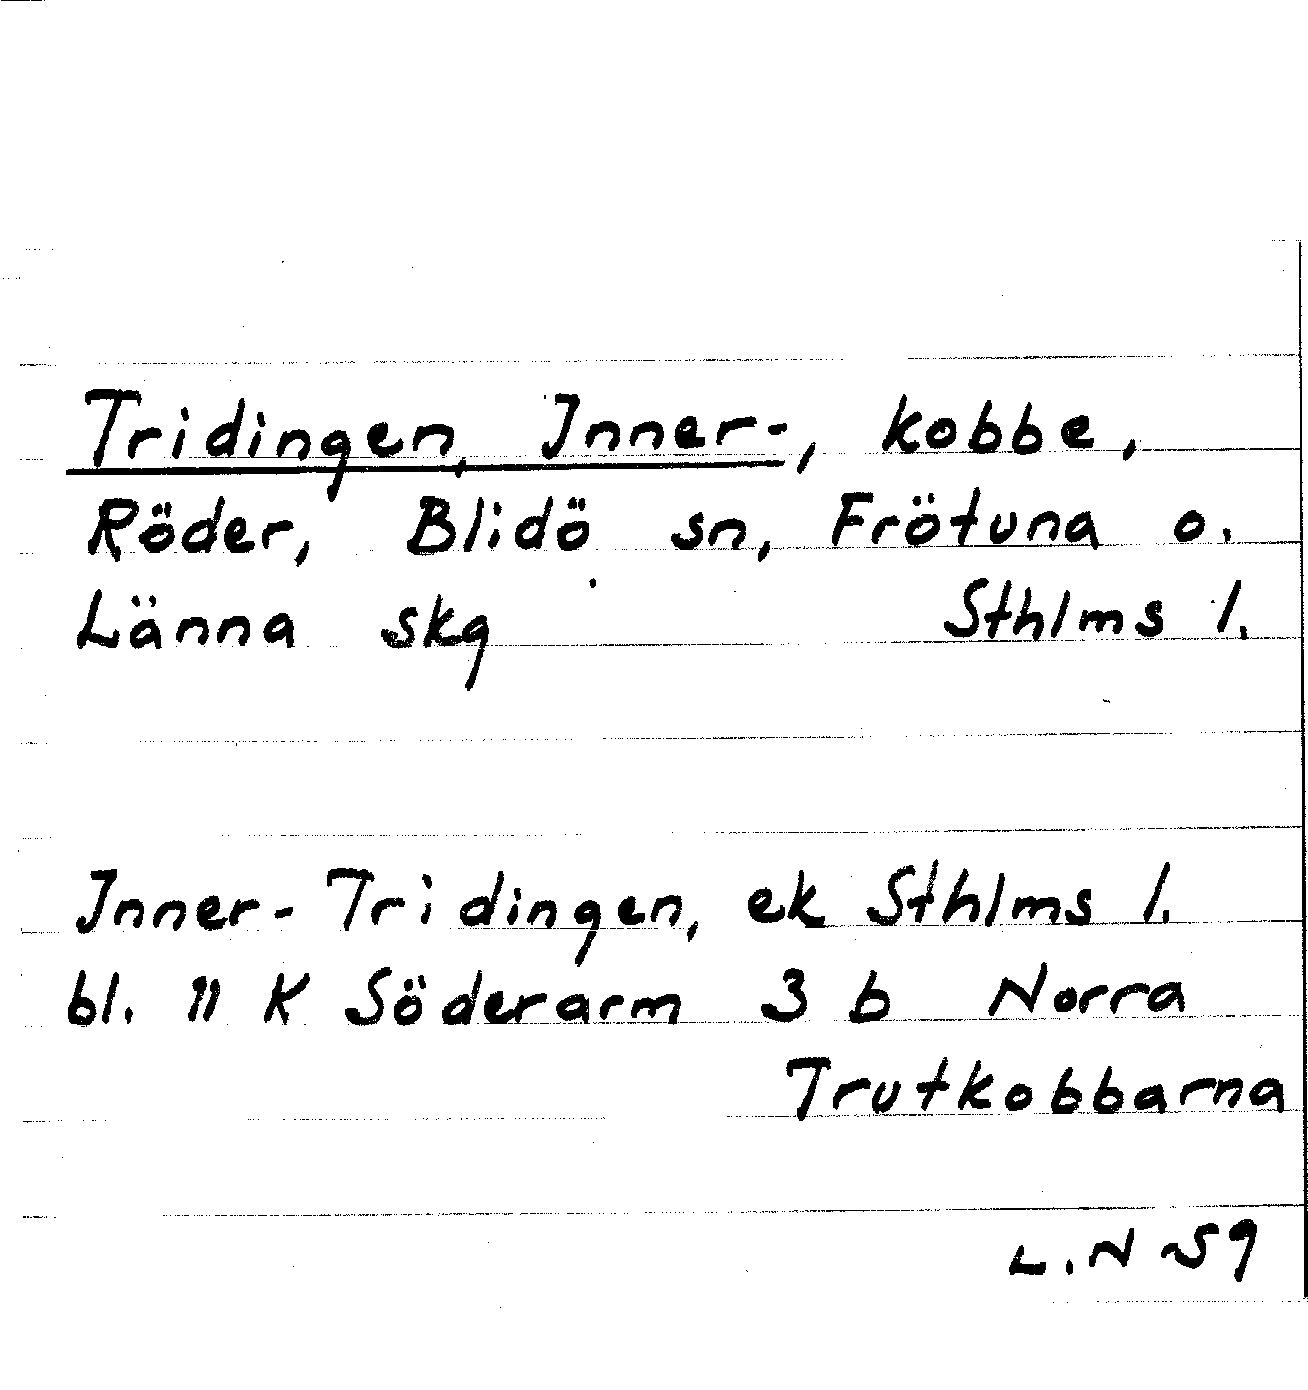 Tridingen, Inner-, kobbe,
Röder, Blidö sn, Frötuna o.
Länna skg Sthlms l.
Inner-Tridingen, ek Sthlms l.
bl. 11 K Söderarm 3 b Norra
Trutkobbarna
L.N -59